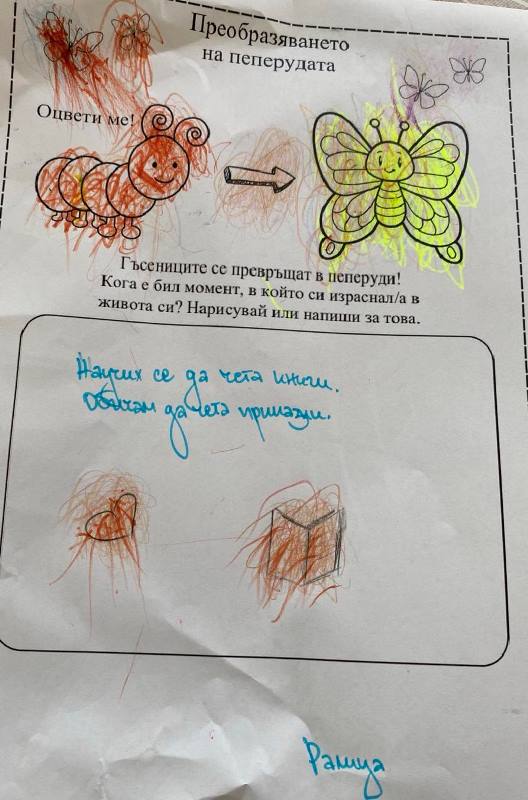 Преобразяването
на пеперудата
Оцвети ме!
Гъсениците се превръщат в пеперуди!
Кога е бил момент, в който си израснал/а в
живота си? Нарисувай или напиши за това.
Научих се да чета книги.
Обичам да чета приказки.
Ралица